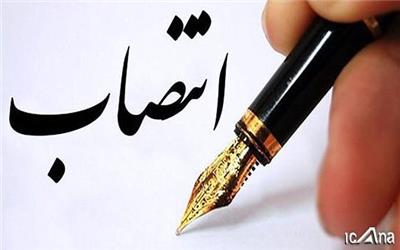 انتصاب
ICAna